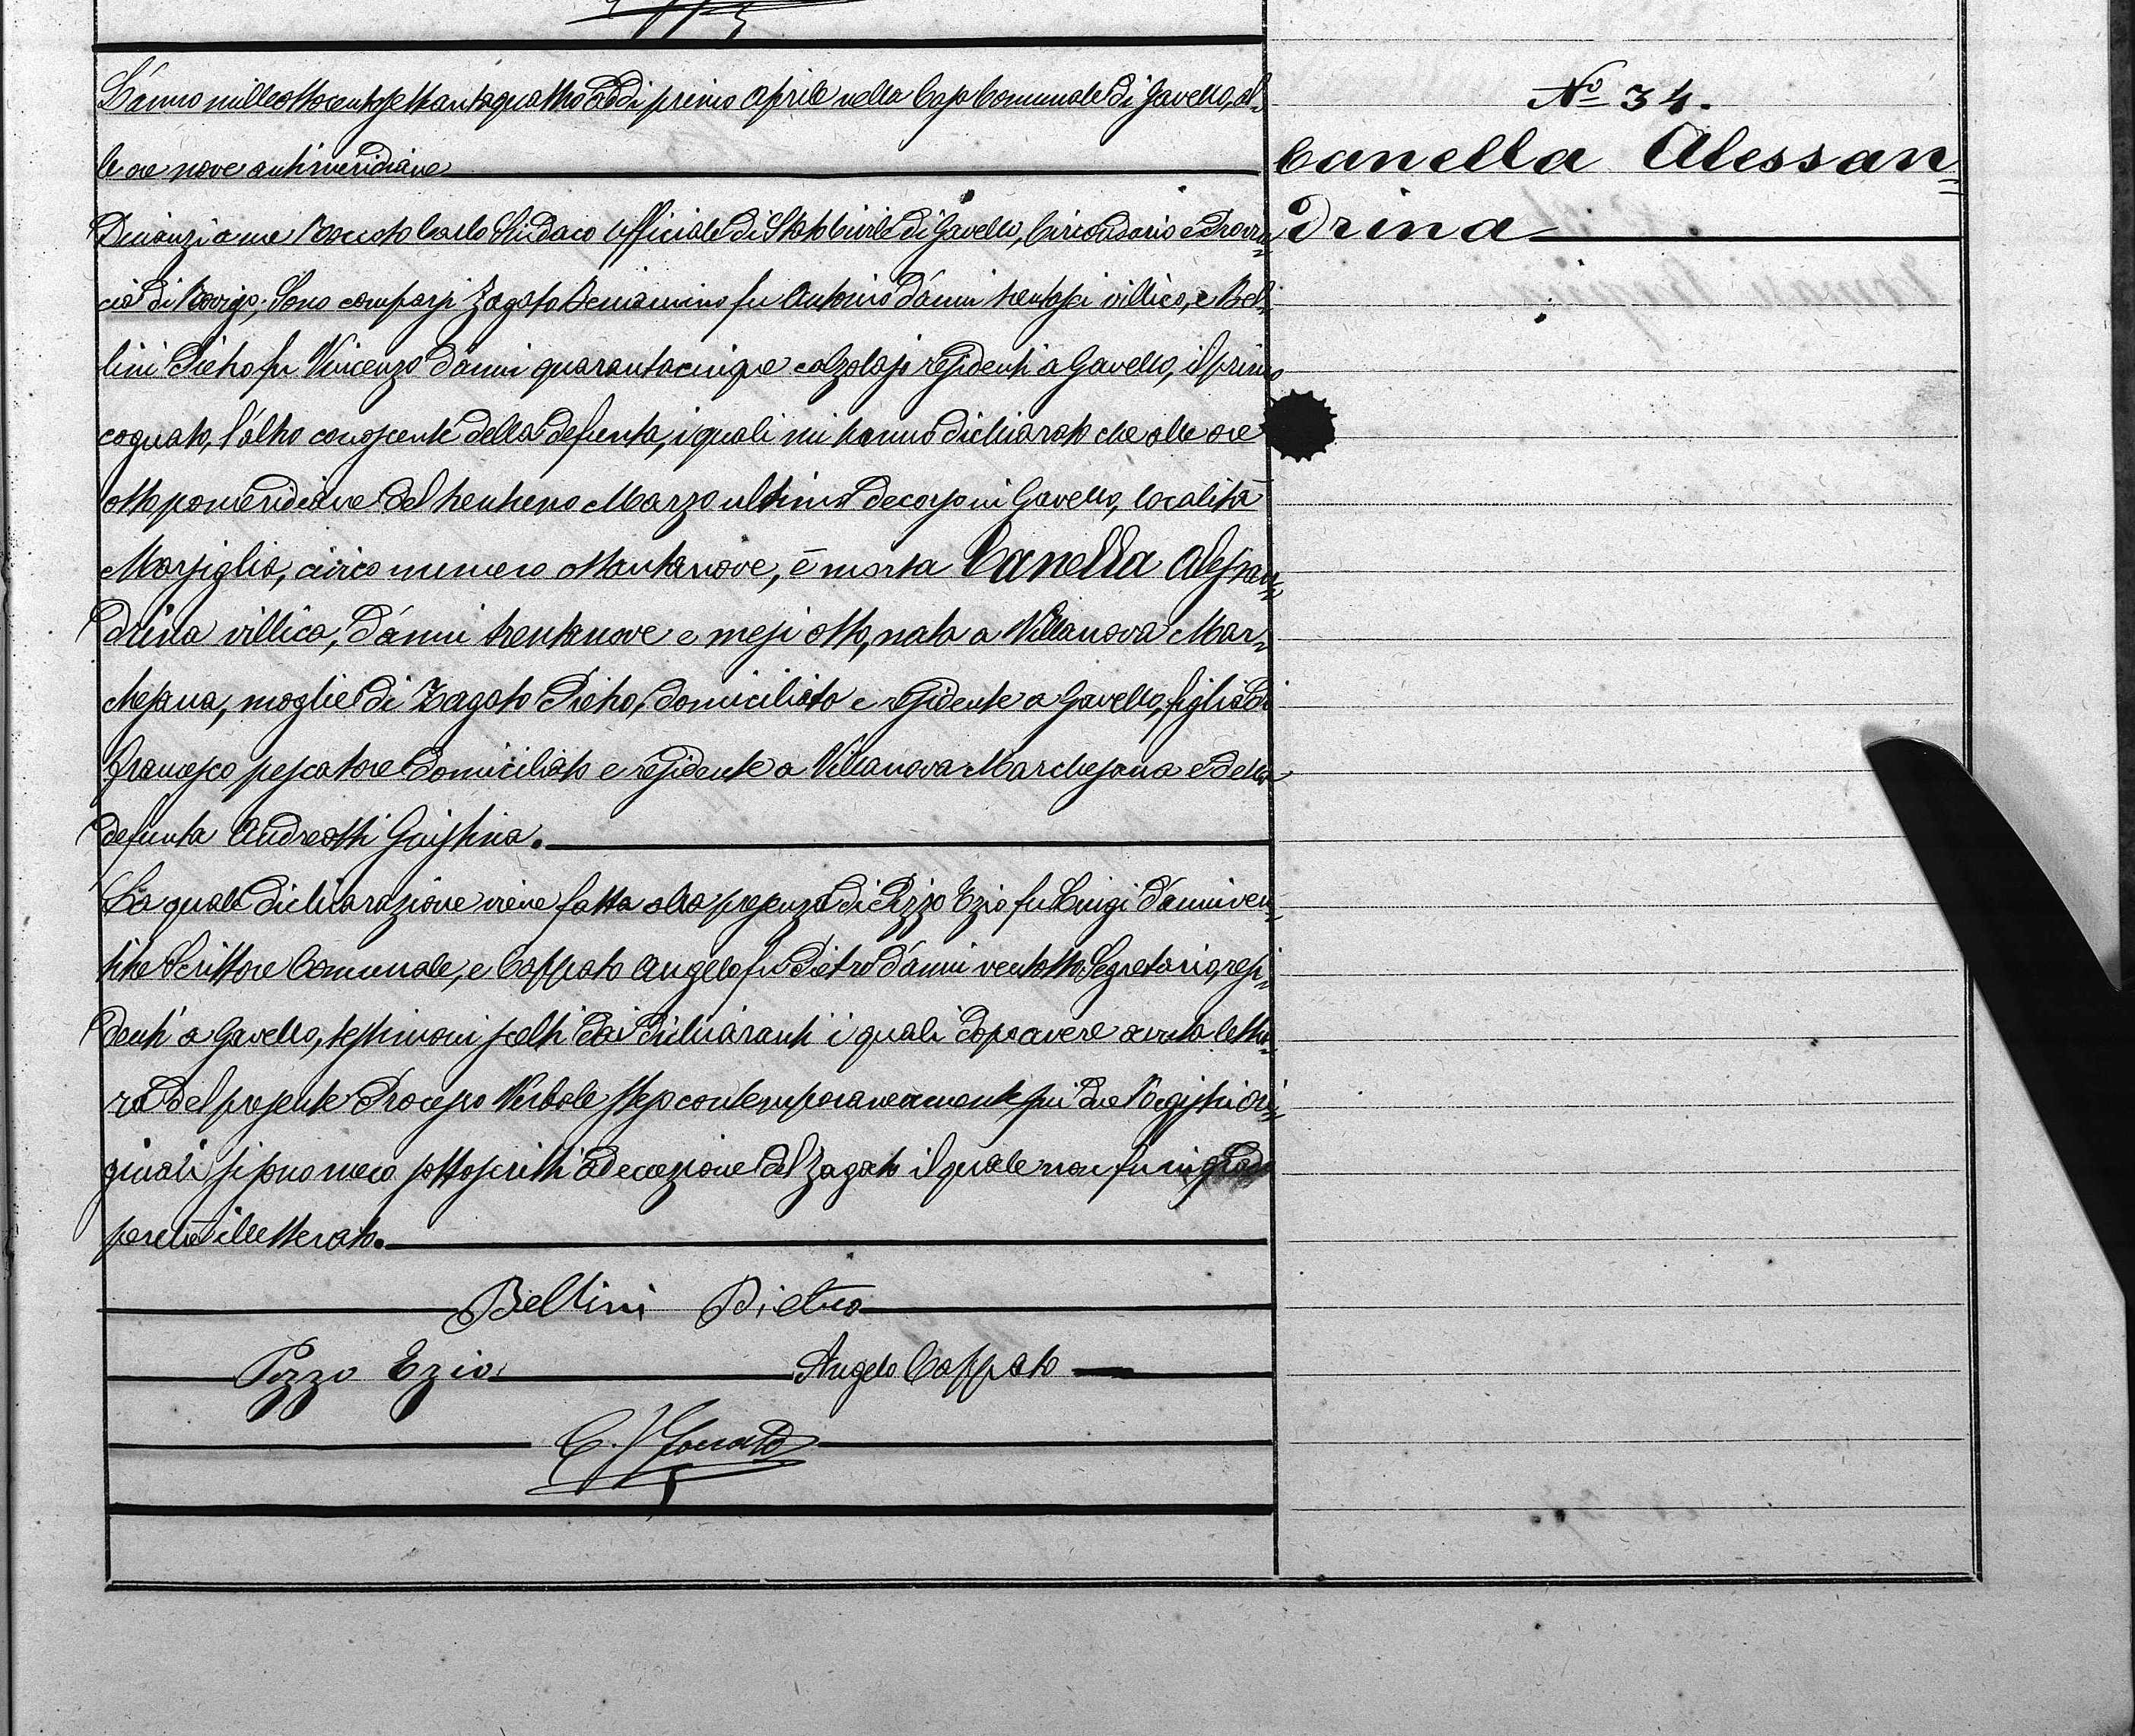 L'anno milleottocentosettantaquattro addì primo Aprile nella Casa Comunale di Gavello, al-
le ore nove antimeridiane
Dinanzi a me Carlo Sindaco Ufficiale di Stato Civile di Gavello, Circondario e Provin-
cia di Rovigo; Sono comparsi Zagato Beniamino fu Antonio d'anni trentasei villico, e Bel-
lini Pietro fu Vincenzo d'anni quarantacinque calzolajo residenti a Gavello, il primo
cognato, l'altro conoscente della defunta, i quali mi hanno dichiarato che alle ore
otto pomeridiane del trentuno Marzo ultimo decorso in Gavello, località
Marsiglia, civico numero ottantanove, è morta Canella Alessan-
drina villica, d'anni trentanove e mesi otto, nata a Villanova Mar-
chesana, moglie di Zagato Pietro, domiciliato e residente a Gavello, figlia di
Francesco pescatore domiciliato e residente a Villanova Marchesana e della
defunta Andreotti Gristina.
La quale dichiarazione viene fatta alla presenza di Pozzo Ezio fu Luigi d'anni ven-
titre Scrittore Comunale, e Cappato Angelo fu Pietro d'anni ventotto Segretario, resi-
denti a Gavello, testimoni scelti dai dichiaranti i quali dopo avere avuta lettu-
ra del presente Processo Verbale steso contemporaneamente sui due Registri ori-
ginali si sono meco sottoscritti ad eccezione del Zagato il quale non fu in grado
perchè illetterato.
Bellini Pietro
Pozzo Ezio Angelo Cappato
N° 34.
Canella Alessan-
drina